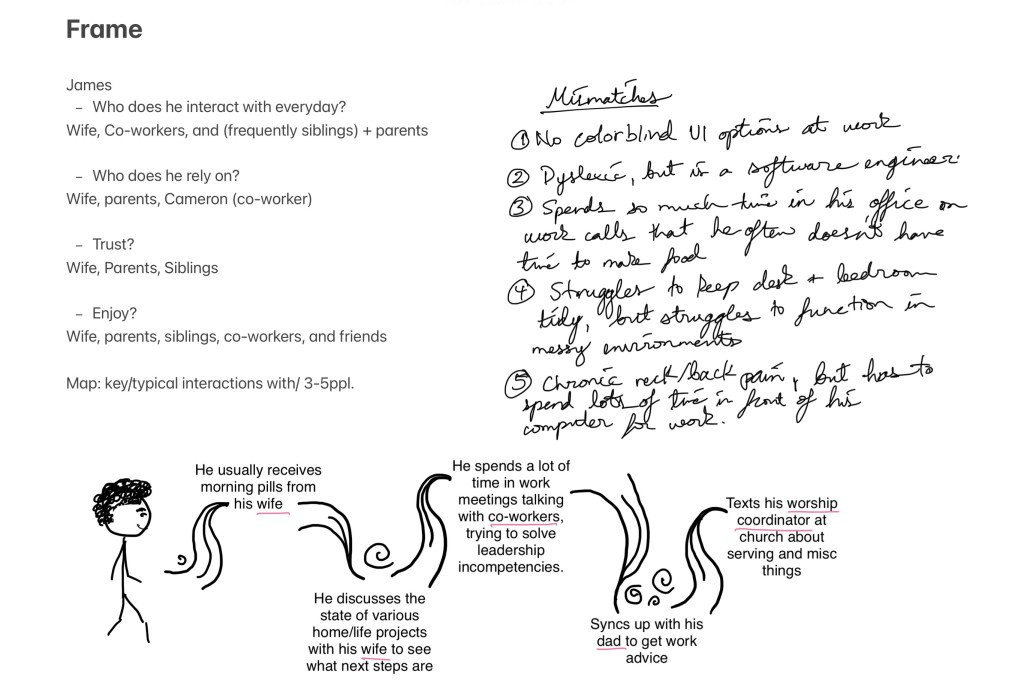 Frame
James
– Who does he interact with everyday?
Wife, Co-workers, and (frequently siblings) + parents
– Who does he rely on?
Wife, parents, Cameron (co-worker)
– Trust?
Wife, Parents, Siblings
– Enjoy?
Wife, parents, siblings, co-workers, and friends
Map: key/typical interactions with/ 3-5ppl.
Mismatches
① No colorblind UI options at work
② Dyslexic, but is a software engineer.
③ Spends so much time in his office on
work calls that he often doesn't have
time to make food
④ Struggles to keep desk + bedroom
tidy, but struggles to function in
messy environments
⑤ Chronic neck/back pain, but has to
spend lots of time in front of his
computer for work.
He usually receives
morning pills from
his wife
He discusses the
state of various
home/life projects
with his wife to see
what next steps are
He spends a lot of
time in work
meetings talking
with co-workers,
trying to solve
leadership
incompetencies.
Syncs up with his
dad to get work
advice
Texts his worship
coordinator at
church about
serving and misc
things